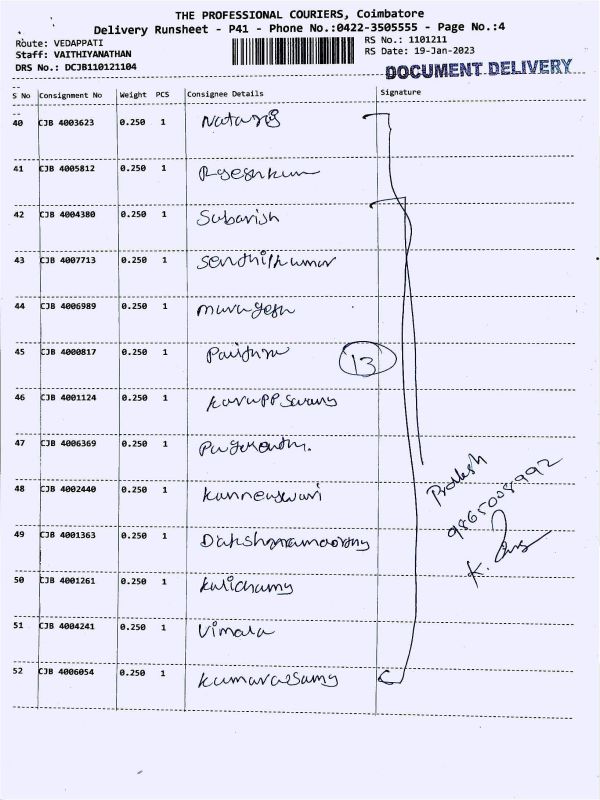 THE PROFESSIONAL COURIERS, Coimbatore
Delivery Runsheet - P41 - Phone No.:0422-3505555 - Page No.:4
Route: VEDAPPATI
RS No.: 1101211
Staff: VAITHIYANATHAN
RS Date: 19-Jan-2023
DRS No.: DCJB110121104
DOCUMENT DELIVERY
S No Consignment No Weight PCS Consignee Details Signature
40 CJB 4003623 0.250 1 Nataraj
41 CJB 4005812 0.250 1
42 CJB 4004380 0.250 1 Sabarish
43 CJB 4007713 0.250 1 Senthilkumar
44 CJB 4006989 0.250 1 murugesh
45 CJB 4000817 0.250 1
13
46 CJB 4001124 0.250 1 karuppswamy
47 CJB 4006369 0.250 1
48 CJB 4002440 0.250 1
49 CJB 4001363 0.250 1
50 CJB 4001261 0.250 1 kalichamy
51 CJB 4004241 0.250 1 Vimala
52 CJB 4006054 0.250 1 kumarasamy
9865008992
K.